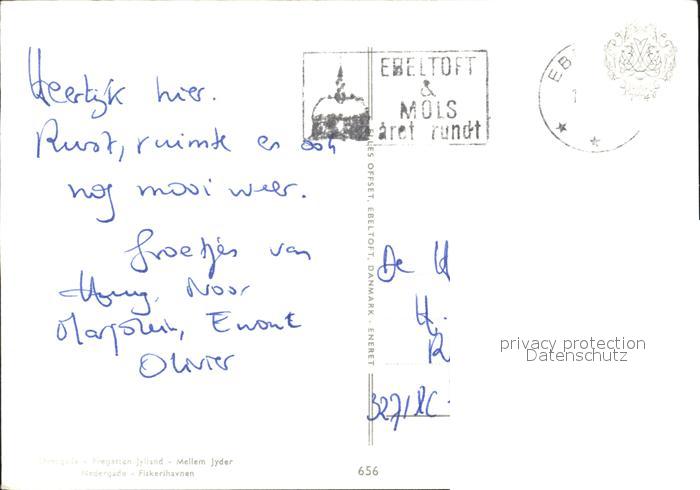 Heerlijk hier.
Rust, ruimte en ook
nog mooi weer.
Groetjes van
Noor
Marjolein, Ewout
Olivier
EBELTOFT
&
MOLS
året rundt
EB
LES OFFSET, EBELTOFT, DANMARK - ENERET
De H
H.
R
3271 RC
privacy protection
Datenschutz
Overgade - Fregatten Jylland - Mellem Jyder
Nedergade - Fiskerihavnen
656